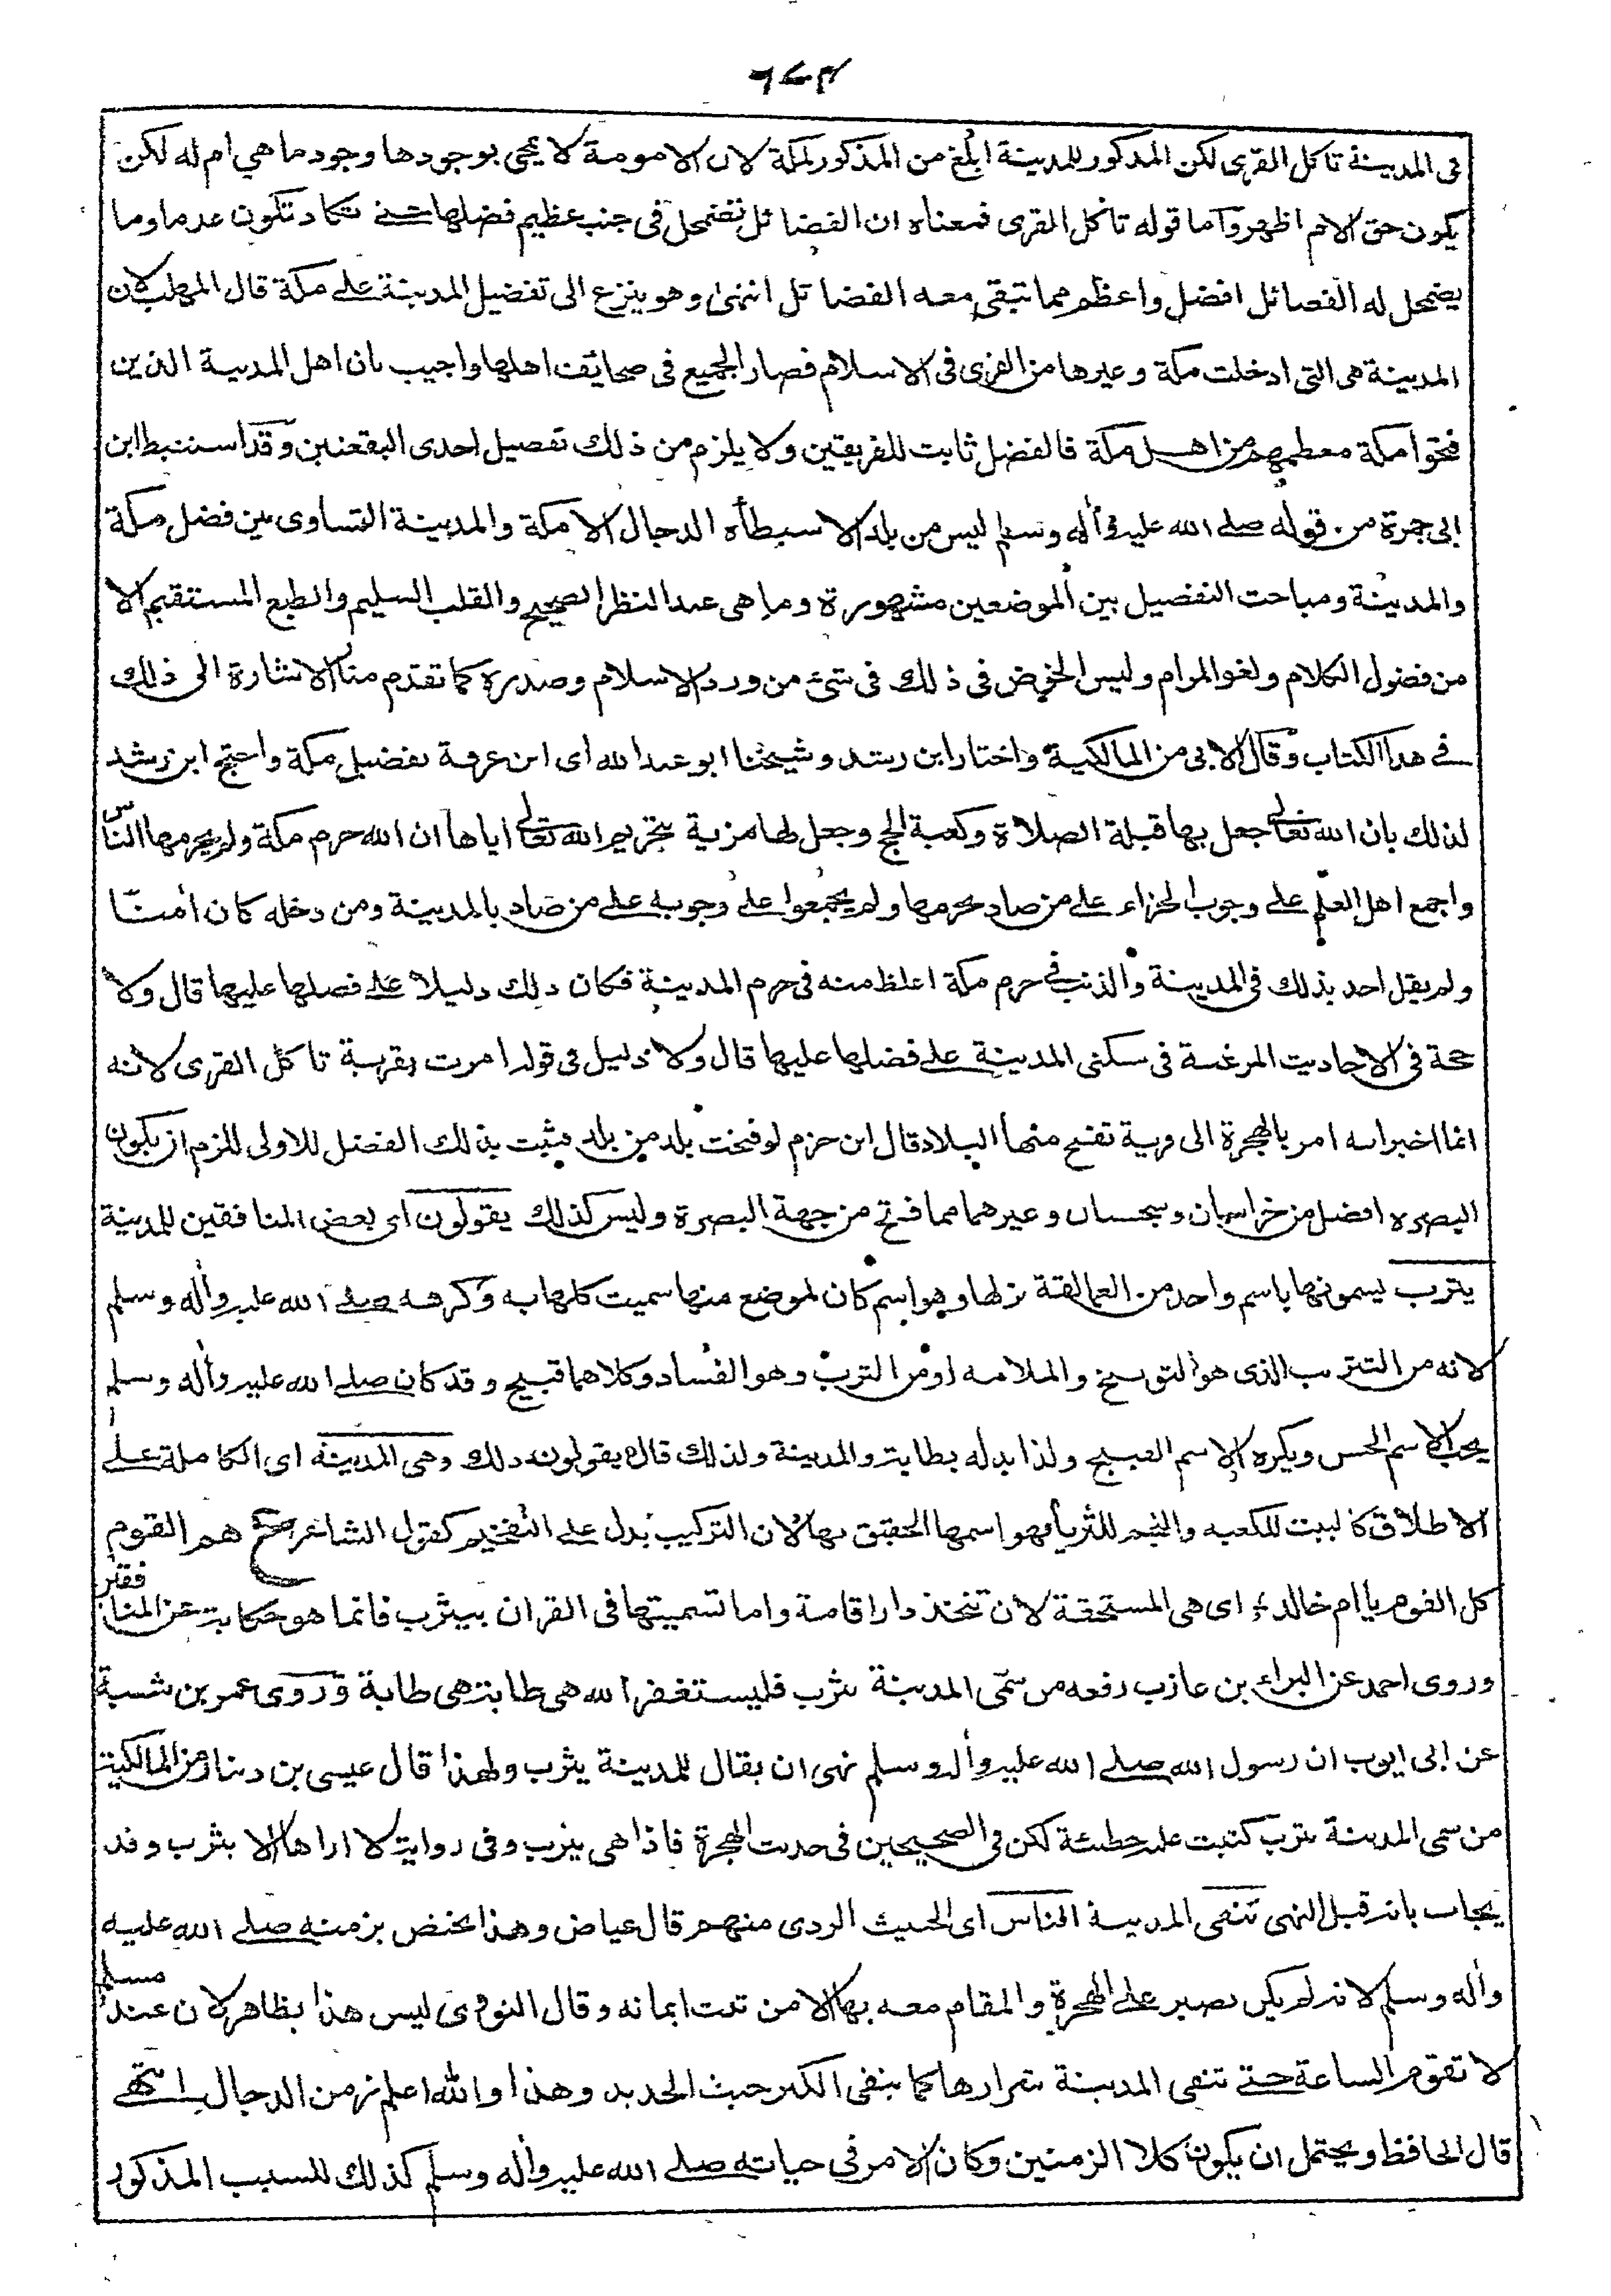 ٦٤٣
فى المدينة تاكل القرى لكن المذكور للمدينة ابلغ من المذكور لمكة لان الامومة لا يمحى بوجودها وجود ما هي ام له لكن
يكون حق الام اظهر وآما قوله تاكل القرى فمعناه ان الفضائل تضمحل فى جنب عظيم فضلها حتے تكاد تكون عدما وما
يضمحل له الفضائل افضل واعظم مما تبقى معه الفضائل انتهى وهو ينزع الى تفضيل المدينة علے مكة قال المهلب لان
المدينة هى التى ادخلت مكة وغيرها من القرى فى الاسلام فصار الجميع فى صحائف اهلها واجيب بان اهل المدينة الذين
فتحوا مكة معظمهم من اهل مكة فالفضل ثابت للفريقين ولا يلزم من ذلك تفضيل احدى البقعتين وقد استنبط ابن
ابى جمرة من قوله صلے الله عليه وأله وسلم ليس من بلد الا سيطأه الدجال الا مكة والمدينة التساوى بين فضل مكة
والمدينة ومباحث التفضيل بين الموضعين مشهورة وما هى عند النظر الصحيح والقلب السليم والطبع المستقيم الا
من فضول الكلام ولغو المرام وليس الخوض فى ذلك فى شئ من ورد الاسلام وصدره كما تقدم منا الاشارة الى ذلك
فے هذا الكتاب وقال الابى من المالكية واختار ابن رشد وشيخنا ابو عبد الله اى ابن عرفة تفضيل مكة واحتج ابن رشد
لذلك بان الله تعالى جعل بها قبلة الصلاة وكعبة الحج وجعل لها مزية بتحريم الله تعالى اياها ان الله حرم مكة ولم يحرمها الناس
واجمع اهل العلم علے وجوب الجزاء علے من صاد بحرمها ولم يجمعوا علے وجوبه علے من صاد بالمدينة ومن دخله كان أمنا
ولم يقل احد بذلك فى المدينة والذنب فے حرم مكة اغلظ منه فى حرم المدينة فكان ذلك دليلا علے فضلها عليها قال ولا
حجة فى الاحاديث المرغبة فى سكنى المدينة علے فضلها عليها قال ولا دليل فى قوله امرت بقرية تاكل القرى لانه
انما اخبر انه امر بالهجرة الى قرية تفتح منها البلاد قال ابن حزم لو فتحت بلد من بلد فثبت بذلك الفضل للاولى للزم ان يكون
البصرة افضل من خراسان وسجستان وغيرهما مما فتح من جهة البصرة وليس كذلك يقولون اى بعض المنافقين للمدينة
يثرب يسمونها باسم واحد من العمالقة نزلها وهو اسم كان لموضع منها سميت كلها به وكرهه صلے الله عليه وأله وسلم
لانه من التثريب الذى هو التوبيخ والملامة او من الثرب وهو الفساد وكلاهما قبيح وقد كان صلے الله عليه وأله وسلم
يحب الاسم الحسن ويكره الاسم القبيح ولذا بدله بطابة والمدينة ولذلك قال يقولون ذلك وهى المدينة اى الكاملة علے
الاطلاق كالبيت للكعبة والنجم للثريا فهو اسمها الحقيق بها لان التركيب يدل علے التفخيم كقول الشاعر ع هم القوم
كل القوم يا ام خالد ؛ اى هى المستحقة لان تتخذ دار اقامة واما تسميتها فى القران بيثرب فانما هو حكاية عن المنافقين
وروى احمد عن البراء بن عازب رفعه من سمى المدينة يثرب فليستغفر الله هى طابة هى طابة وروى عمر بن شبة
عن ابى ايوب ان رسول الله صلے الله عليه وأله وسلم نهى ان يقال للمدينة يثرب ولهذا قال عيسى بن دينار من المالكية
من سمى المدينة يثرب كتبت عليه خطيئة لكن فى الصحيحين فى حديث الهجرة فاذا هى يثرب وفى رواية لا اراها الا يثرب وقد
يجاب بانه قبل النهى تنفى المدينة الناس اى الخبيث الردى منهم قال عياض وهذا يختص بزمنه صلے الله عليه
وأله وسلم لانه لم يكن يصبر علے الهجرة والمقام معه بها الا من ثبت ايمانه وقال النووى ليس هذا بظاهر لان عند مسلم
لا تقوم الساعة حتے تنفى المدينة شرارها كما ينفى الكير خبث الحديد وهذا والله اعلم زمن الدجال انتهے
قال الحافظ ويحتمل ان يكون كلا الزمنين وكان الامر فى حياته صلے الله عليه وأله وسلم كذلك للسبب المذكور